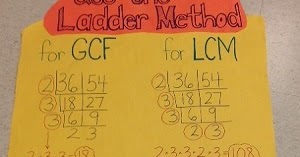 Use the
Ladder Method
for GCF
2 36 54
3 18 27
3 6 9
2 3
2·3·3=18
for LCM
2 36 54
3 18 27
3 6 9
2 3
2·3·3·2·3=108